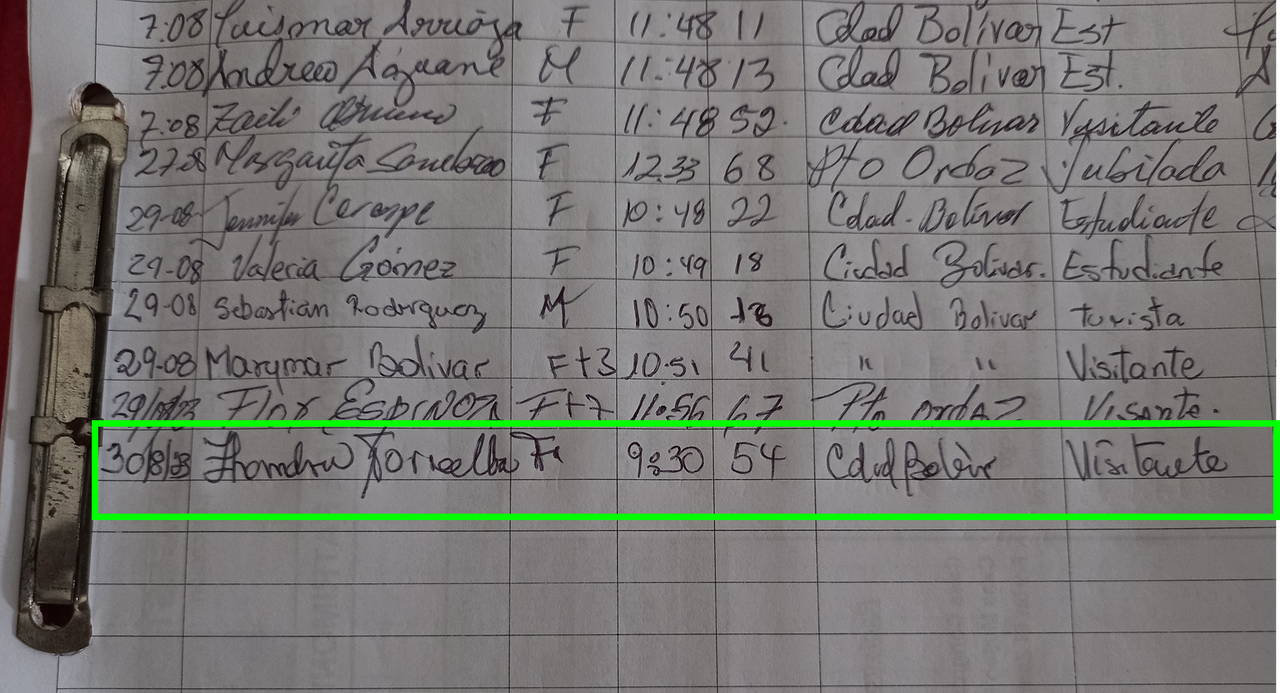 7:08 Luismar Arrioja F 11:48 11 Cdad Bolívar Est
7:08 Andrew Aguane M 11:48 13 Cdad Bolívar Est.
7:08 F 11:48 52. Cdad Bolivar Vysitante
27-28 Margarita F 12.33 68 Pto Ordaz Jubilada
29-08 Jennifer F 10:48 22 Cdad. Bolívar Estudiante
29-08 Valeria Gómez F 10:49 18 Ciudad Bolivar. Estudiante
29-08 Sebastian Rodriguez M 10:50 18 Ciudad Bolivar turista
29-08 Marymar Bolivar F+3 10:51 41 " " Visitante
Flor Espinoza F+7 11:56 67 Pto ordaz Visante.
30/8/23 F 9:30 54 Visitante